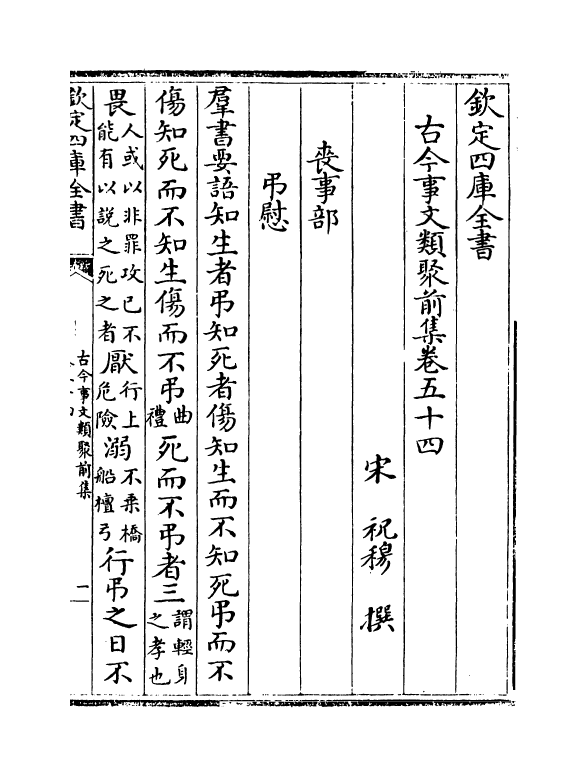 欽定四庫全書
古今事文類聚前集卷五十四
宋 祝穆 撰
喪事部
弔慰
羣書要語知生者弔知死者傷知生而不知死弔而不
傷知死而不知生傷而不弔曲禮死而不弔者三謂輕身之孝也
畏人或以非罪攻已不能有以說之死之者厭行上危險溺不乗橋船檀弓行弔之日不
欽定四庫全書
古今事文類聚前集
一